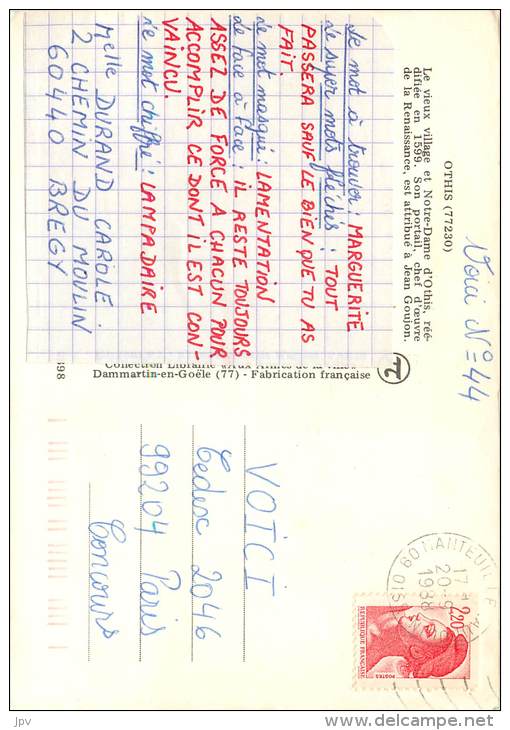 OTHIS (77230)
Le vieux village et Notre-Dame d'Othis, réé-
difiée en 1599. Son portail, chef d'œuvre
de la Renaissance, est attribué à Jean Goujon.
Voici N° 44
Le mot à trouver : MARGUERITE
Le super mots fléchés : TOUT
PASSERA SAUF LE BIEN QUE TU AS
FAIT.
Le mot masqué : LAMENTATION
De face à face : IL RESTE TOUJOURS
ASSEZ DE FORCE A CHACUN POUR
ACCOMPLIR CE DONT IL EST CON-
VAINCU.
Le mot chiffré : LAMPADAIRE
Melle DURAND CAROLE
2 CHEMIN DU MOULIN
60440 BREGY
Collection Librairie «Aux Armes de la Ville»
Dammartin-en-Goële (77) - Fabrication française
398
60 NANTEUIL LE
17 H
20-9
1988
OIS
2,20
REPUBLIQUE FRANÇAISE
POSTES
VOICI
Cedex 2046
99204 Paris
Concours
JPV
www.delcampe.net